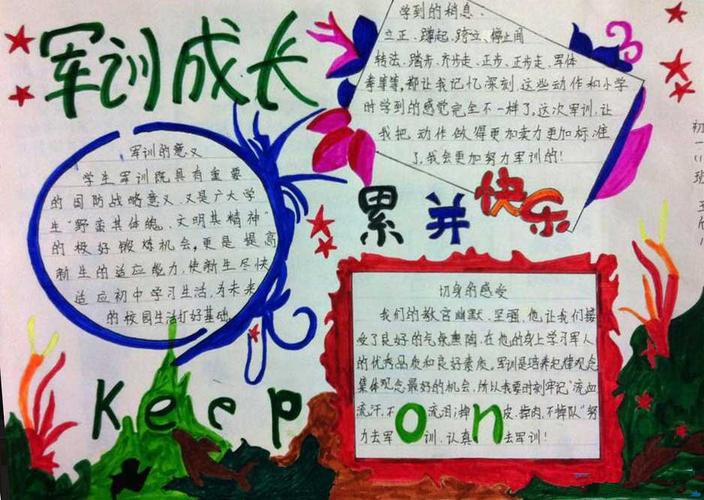 军训成长
学到的稍息、
立正、蹲起、跨立、停止间
转法、踏步、齐步走、正步、正步走、军体
拳等等,都让我记忆深刻.这些动作和小学
时学到的感觉完全不一样了,这次军训,让
我把动作做得更加卖力更加标准
了,我会更加努力军训的!
军训的意义
学生军训既具有重要
的国防战略意义,又是广大学
生“野蛮其体魄、文明其精神”
的极好锻炼机会,更是提高
新生的适应能力,使新生尽快
适应初中学习生活,为未来
的校园生活打好基础.
累并快乐
初一
班
切身的感受
我们的教官幽默、坚强,他让我们接
受了良好的气氛熏陶,在他的身上学习军人
的优秀品质和良好素质,军训是培养纪律观念
集体观念最好的机会,所以我要时刻牢记“流血
流汗,不流泪;掉皮、掉肉、不掉队”努
力去军训,认真去军训!
Keep on